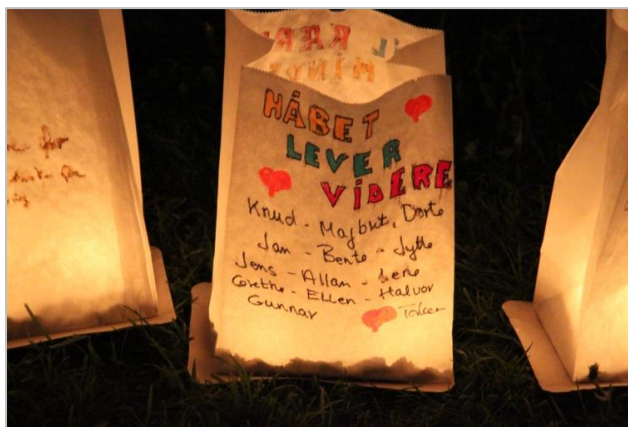 HÅBET
LEVER
VIDERE
Knud - Majbrit, Dorte
Jan - Bente - Jytte
Jens - Allan - Lene
Grethe - Ellen - Halvor
Gunnar